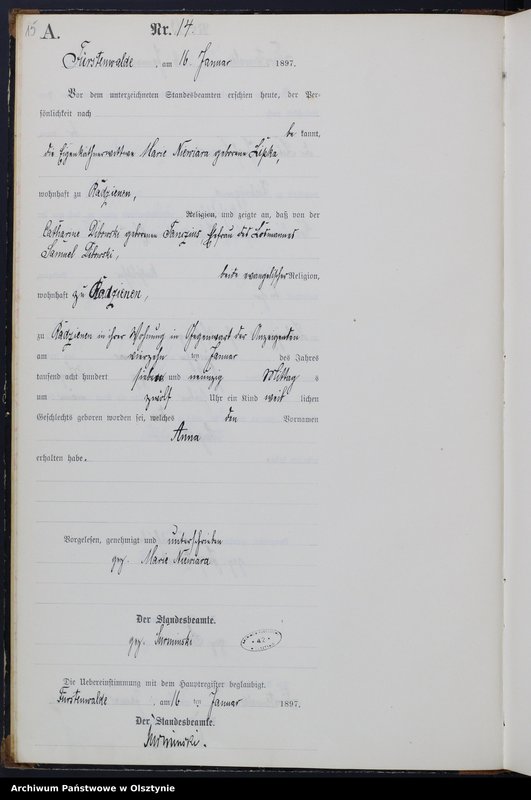 15
A.
Nr. 14.
Fürstenwalde, am 16 Januar 1897.
Vor dem unterzeichneten Standesbeamten erschien heute, der Per-
sönlichkeit nach
be kannt,
die Eigenkäthnerwittwe Marie Niewiara geborene Lipka,
wohnhaft zu Radzienen,
Religion, und zeigte an, daß von der
Catharine Dibowski geborenen Ehefrau des Losmannes
Samuel Dibowski,
beide evangelischer Religion,
wohnhaft zu Radzienen,
zu Radzienen in ihrer Wohnung in Gegenwart der Anzeigenden
am vierzehn ten Januar des Jahres
tausend acht hundert sieben und neunzig Mittag s
um zwölf Uhr ein Kind weib lichen
Geschlechts geboren worden sei, welches den Vornamen
Anna
erhalten habe.
Vorgelesen, genehmigt und unterschrieben
gez. Marie Niewiara
Der Standesbeamte.
gez.
Die Uebereinstimmung mit dem Hauptregister beglaubigt.
Fürstenwalde, am 16 ten Januar 1897.
Der Standesbeamte.
Archiwum Państwowe w Olsztynie